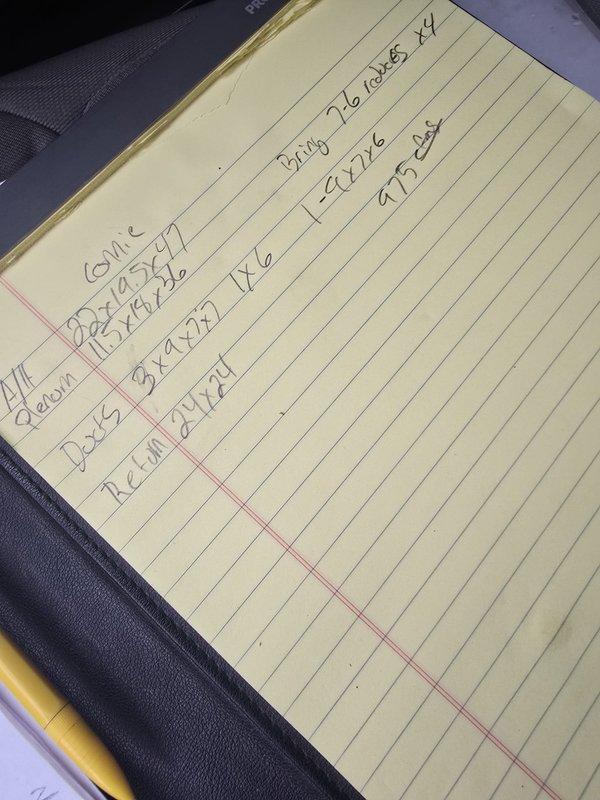 PRO
Connie
A/H 22x19.5x47
Plenum 11.5x18x36
Ducts 3x9x7x7 1x6
Return 24x24
Bring 7-6 reduces x4
1-9x7x6
975